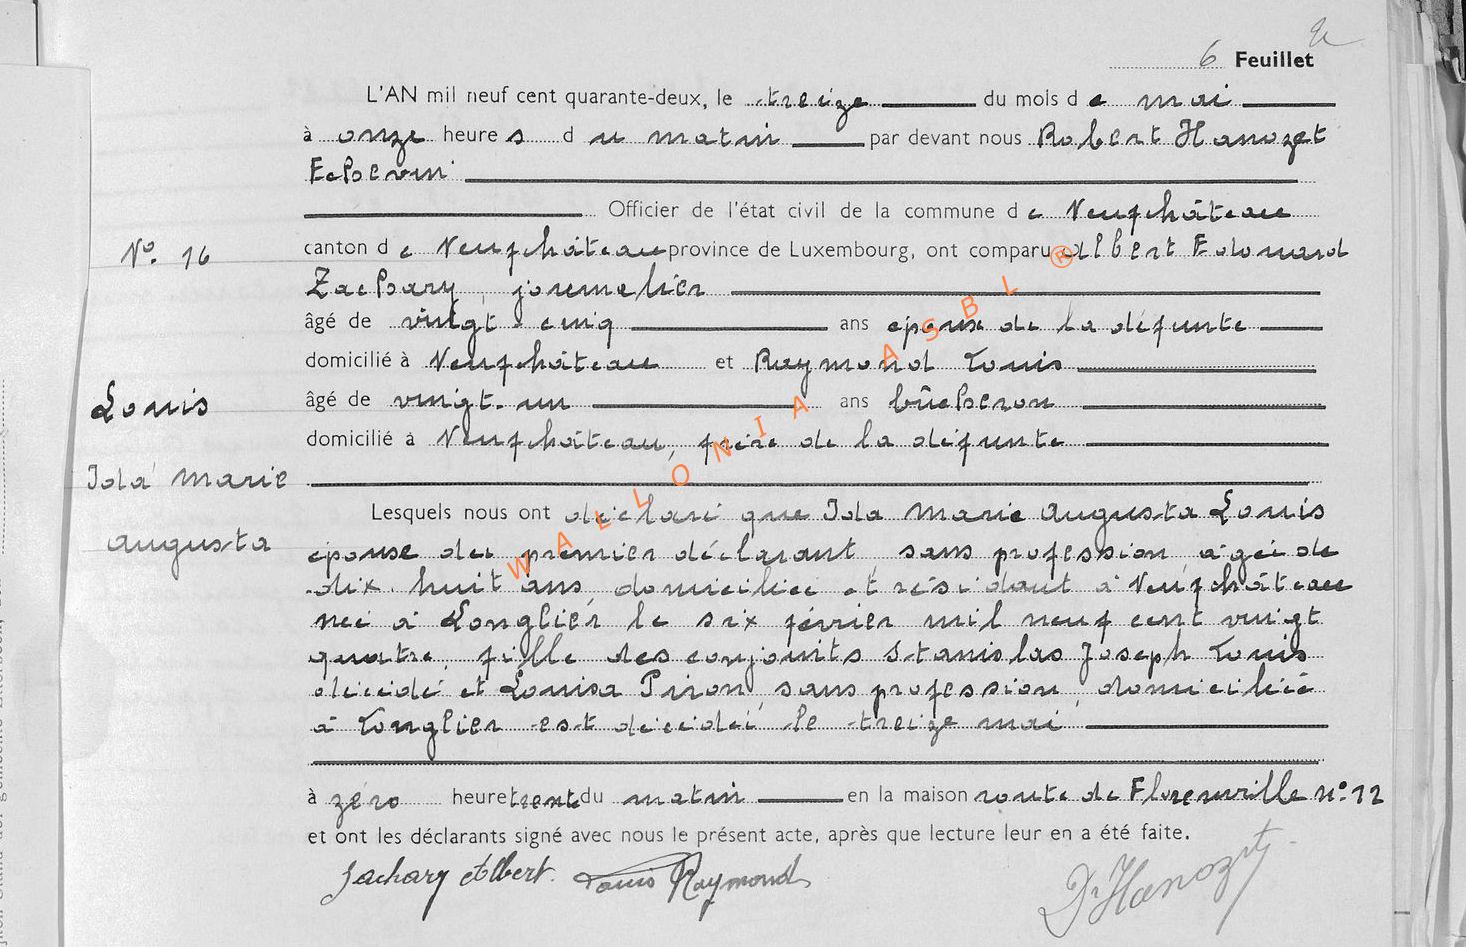 6 Feuillet
L'AN mil neuf cent quarante-deux, le treize du mois de mai
à onze heures du matin par devant nous Robert Hanozet
Echevin
Officier de l'état civil de la commune de Neufchâteau
No. 16
canton de Neufchâteau province de Luxembourg, ont comparu Albert Edouard
Zachary, journalier
âgé de vingt-cinq ans epoux de la défunte
domicilié à Neufchâteau et Raymond Louis
Louis
âgé de vingt-un ans bûcheron
domicilié à Neufchâteau, frère de la défunte
Ida Marie
Augusta
Lesquels nous ont déclaré que Ida Marie Augusta Louis
épouse du premier déclarant, sans profession, âgée de
dix-huit ans, domiciliée et résidant à Neufchâteau
née à Longlier le six février mil neuf cent vingt
quatre, fille des conjoints Stanislas Joseph Louis
décédé et Louisa Piron, sans profession, domiciliée
à Longlier est décédée le treize mai
à zéro heure trente du matin en la maison route de Florenville n° 12
et ont les déclarants signé avec nous le présent acte, après que lecture leur en a été faite.
Zachary Albert. Louis Raymond
Dr Hanozet
WALLONIA ASBL ®